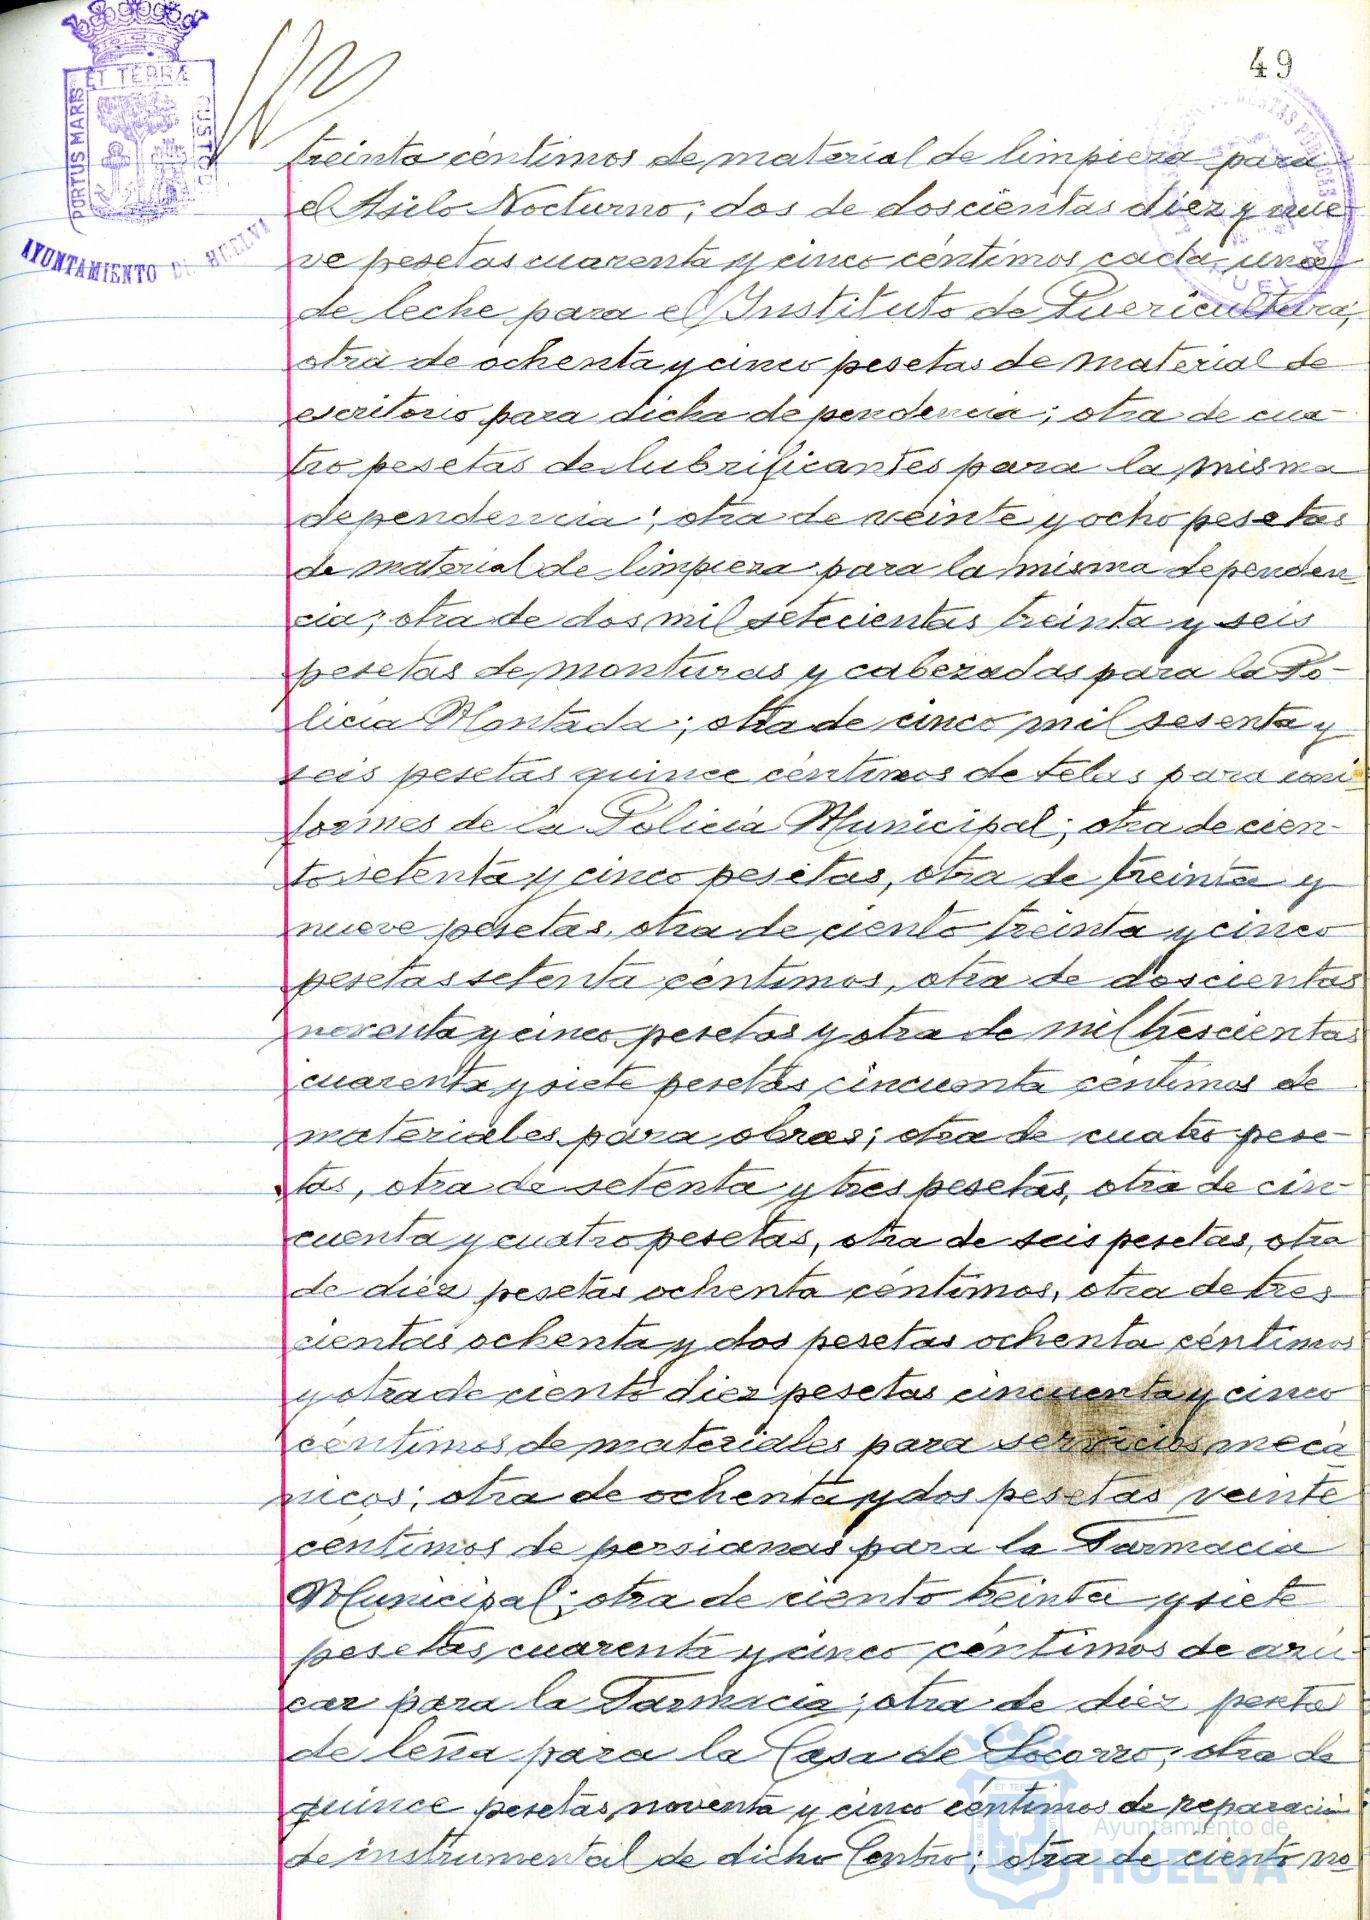 49
ET TERRÆ
PORTUS MARIS
CUSTOD
AYUNTAMIENTO DE HUELVA
treinta céntimos de material de limpieza para
el Asilo Nocturno; dos de doscientas diez y nue-
ve pesetas cuarenta y cinco céntimos cada una
de leche para el Instituto de Puericultura;
otra de ochenta y cinco pesetas de material de
escritorio para dicha dependencia; otra de cua-
tro pesetas de lubrificantes para la misma
dependencia; otra de veinte y ocho pesetas
de material de limpieza para la misma dependen-
cia; otra de dos mil setecientas treinta y seis
pesetas de monturas y cabezadas para la Po-
licía Montada; otra de cinco mil sesenta y
seis pesetas quince céntimos de telas para uni-
formes de la Policía Municipal; otra de cien-
to setenta y cinco pesetas, otra de treinta y
nueve pesetas, otra de ciento treinta y cinco
pesetas setenta céntimos, otra de doscientas
noventa y cinco pesetas y otra de mil trescientas
cuarenta y siete pesetas cincuenta céntimos de
materiales para obras; otra de cuatro pese-
tas, otra de setenta y tres pesetas, otra de cin-
cuenta y cuatro pesetas, otra de seis pesetas, otra
de diez pesetas ochenta céntimos, otra de tres
cientas ochenta y dos pesetas ochenta céntimos
y otra de ciento diez pesetas cincuenta y cinco
céntimos de materiales para servicios mecá-
nicos; otra de ochenta y dos pesetas veinte
céntimos de persianas para la Farmacia
Municipal; otra de ciento treinta y siete
pesetas cuarenta y cinco céntimos de azú-
car para la Farmacia; otra de diez pesetas
de leña para la Casa de Socorro; otra de
quince pesetas noventa y cinco céntimos de reparación
de instrumental de dicho Centro; otra de ciento no-
Ayuntamiento de
HUELVA